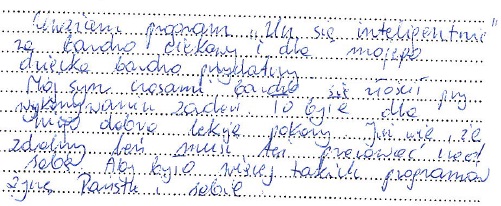 Uważam program „Ucz się inteligentnie”
za bardzo ciekawy i dla mojego
dziecka bardzo przydatny.
Mój syn czasami bardzo się złości przy
wykonywaniu zadań. To była dla
niego dobra lekcja pokory. Już wie, że
zdolny też musi też pracować nad
sobą. Aby było więcej takich programów
życzę Państwu i sobie